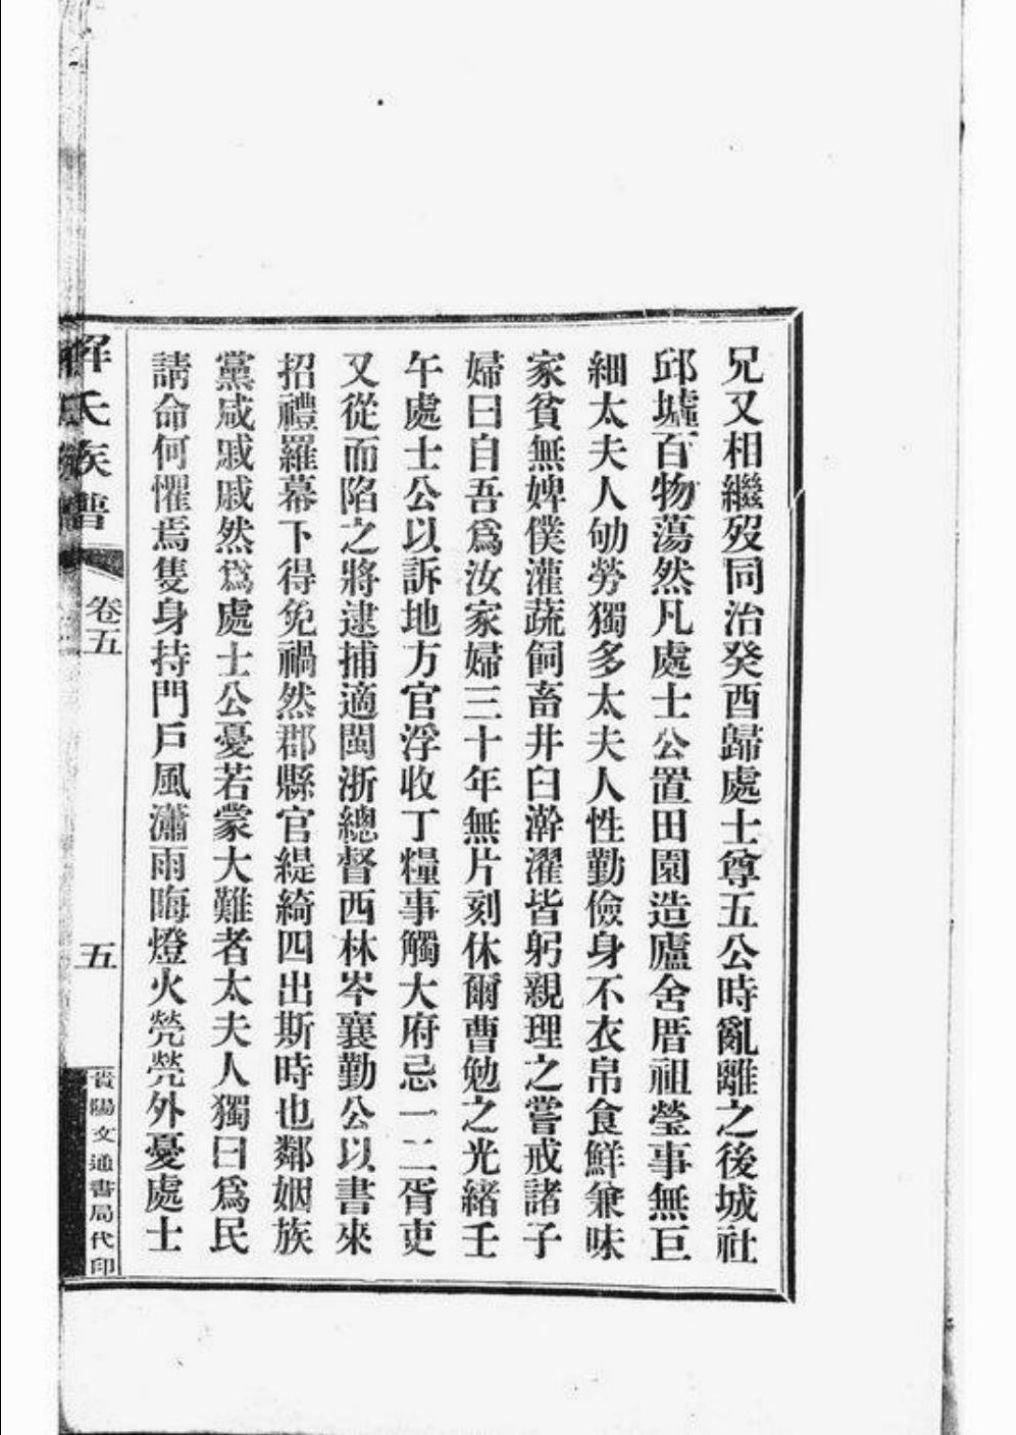 兄又相繼歿同治癸酉歸處士尊五公時亂離之後城社
邱墟百物蕩然凡處士公置田園造廬舍厝祖塋事無巨
細太夫人劬勞獨多太夫人性勤儉身不衣帛食鮮兼味
家貧無婢僕灌蔬飼畜井臼澣濯皆躬親理之嘗戒諸子
婦曰自吾爲汝家婦三十年無片刻休爾曹勉之光緒壬
午處士公以訴地方官浮收丁糧事觸大府忌一二胥吏
又從而陷之將逮捕適閩浙總督西林岑襄勤公以書來
招禮羅幕下得免禍然郡縣官緹綺四出斯時也鄰姻族
黨咸戚戚然爲處士公憂若蒙大難者太夫人獨曰爲民
請命何懼焉隻身持門戶風瀟雨晦燈火煢煢外憂處士
氏族譜
卷五
五
貴陽文通書局代印